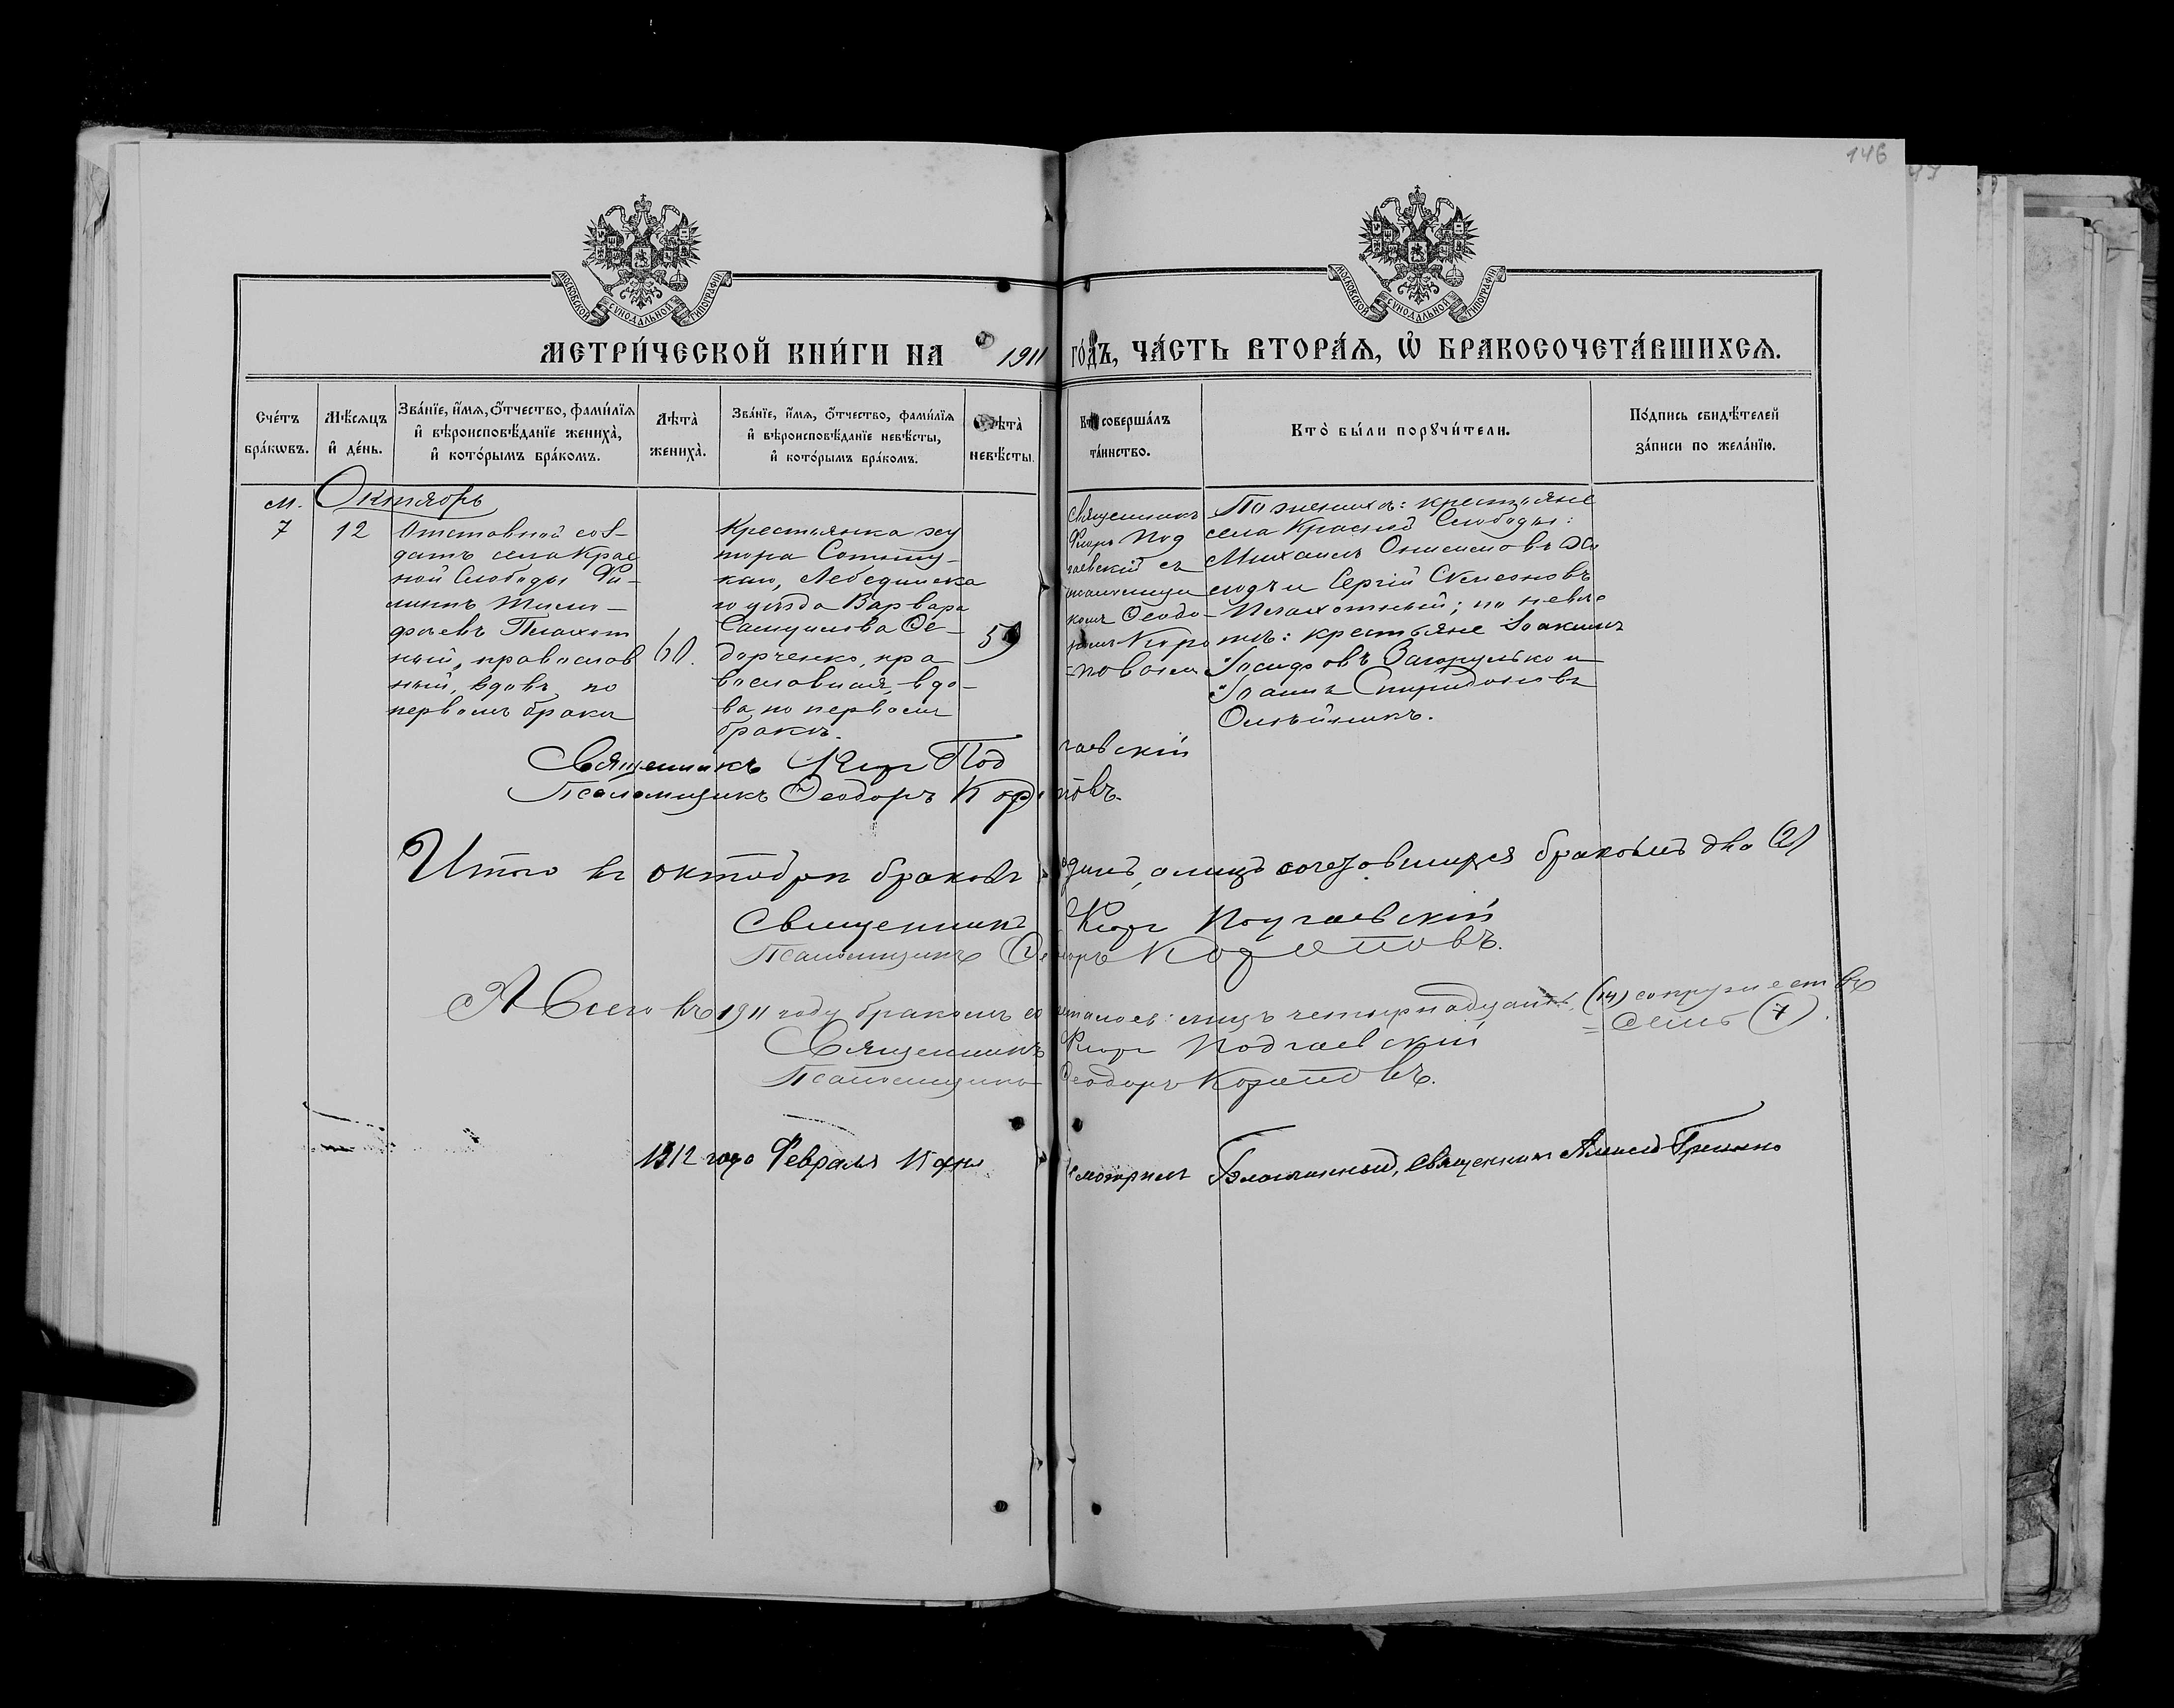 146
47
МОСКОВСКОЙ СѴНОДАЛЬНОЙ ТИПОГРАФІИ
МОСКОВСКОЙ СѴНОДАЛЬНОЙ ТИПОГРАФІИ
МЕТРИ́ЧЕСКОЙ КНИ́ГИ НА 1911 ГО́ДЪ, ЧА́СТЬ ВТОРА́Ѧ, Ѡ҆ БРАКОСОЧЕТА́ВШИХСѦ.
Сче́тъ
бра́кѡвъ.
Мѣ́сѧцъ
и҆ де́нь.
Зва́нїе, и҆́мѧ, ѻ҆́тчество, фами́лїѧ
и҆ вѣроисповѣ́данїе жениха̀,
и҆ кото́рымъ бра́комъ.
Лѣта̀
жениха̀.
Зва́нїе, и҆́мѧ, ѻ҆́тчество, фами́лїѧ
и҆ вѣроисповѣ́данїе невѣ́сты,
и҆ кото́рымъ бра́комъ.
Лѣта̀
невѣ́сты.
Кто̀ соверша́лъ
та́инство.
Кто̀ бы́ли порꙋчи́тели.
По́дпись свидѣ́телей
за́писи по жела́нїю.
м. Октябрь
7
12
Отставной сол-
датъ села Крас
ной Слободы Фи-
липпъ Тимо-
феевъ Плахот
ный, православ
ный, вдовъ по
первомъ браке
60.
Крестьянка ху
тора
Лебединска
го уѣзда Варвара
Самуилова Ѳе-
дорченко, пра
вославная, вдо-
ва по первом
бракѣ.
Священникъ
Под
гаевскій съ
псаломщи
комъ Ѳеодо-
ромъ
По женихѣ: крестьяне
села Красной Слободы:
Михаилъ Онисимовъ
и Сергій Симеоновъ
Плахотный; по невѣс
тѣ: крестьяне Іоакимъ
Іосифовъ Загорулько и
Іоаннъ Спиридоновъ
Олѣйникъ.
Священникъ Под гаевскій
Псаломщикъ Ѳеодоръ
Итого въ октябрѣ браковъ одинъ, а лицъ сочетавшихся бракомъ два (2)
Священникъ Подгаевскій
Псаломщикъ Ѳеодоръ
А Всего въ 1911 году бракомъ сочеталось: лицъ четырнадцать (14) супружествъ
= семь (7).
Священникъ Подгаевскій
Псаломщикъ Ѳеодоръ
1912 года Февраля 15 дня смотрилъ Благочинный, Священникъ Алексій